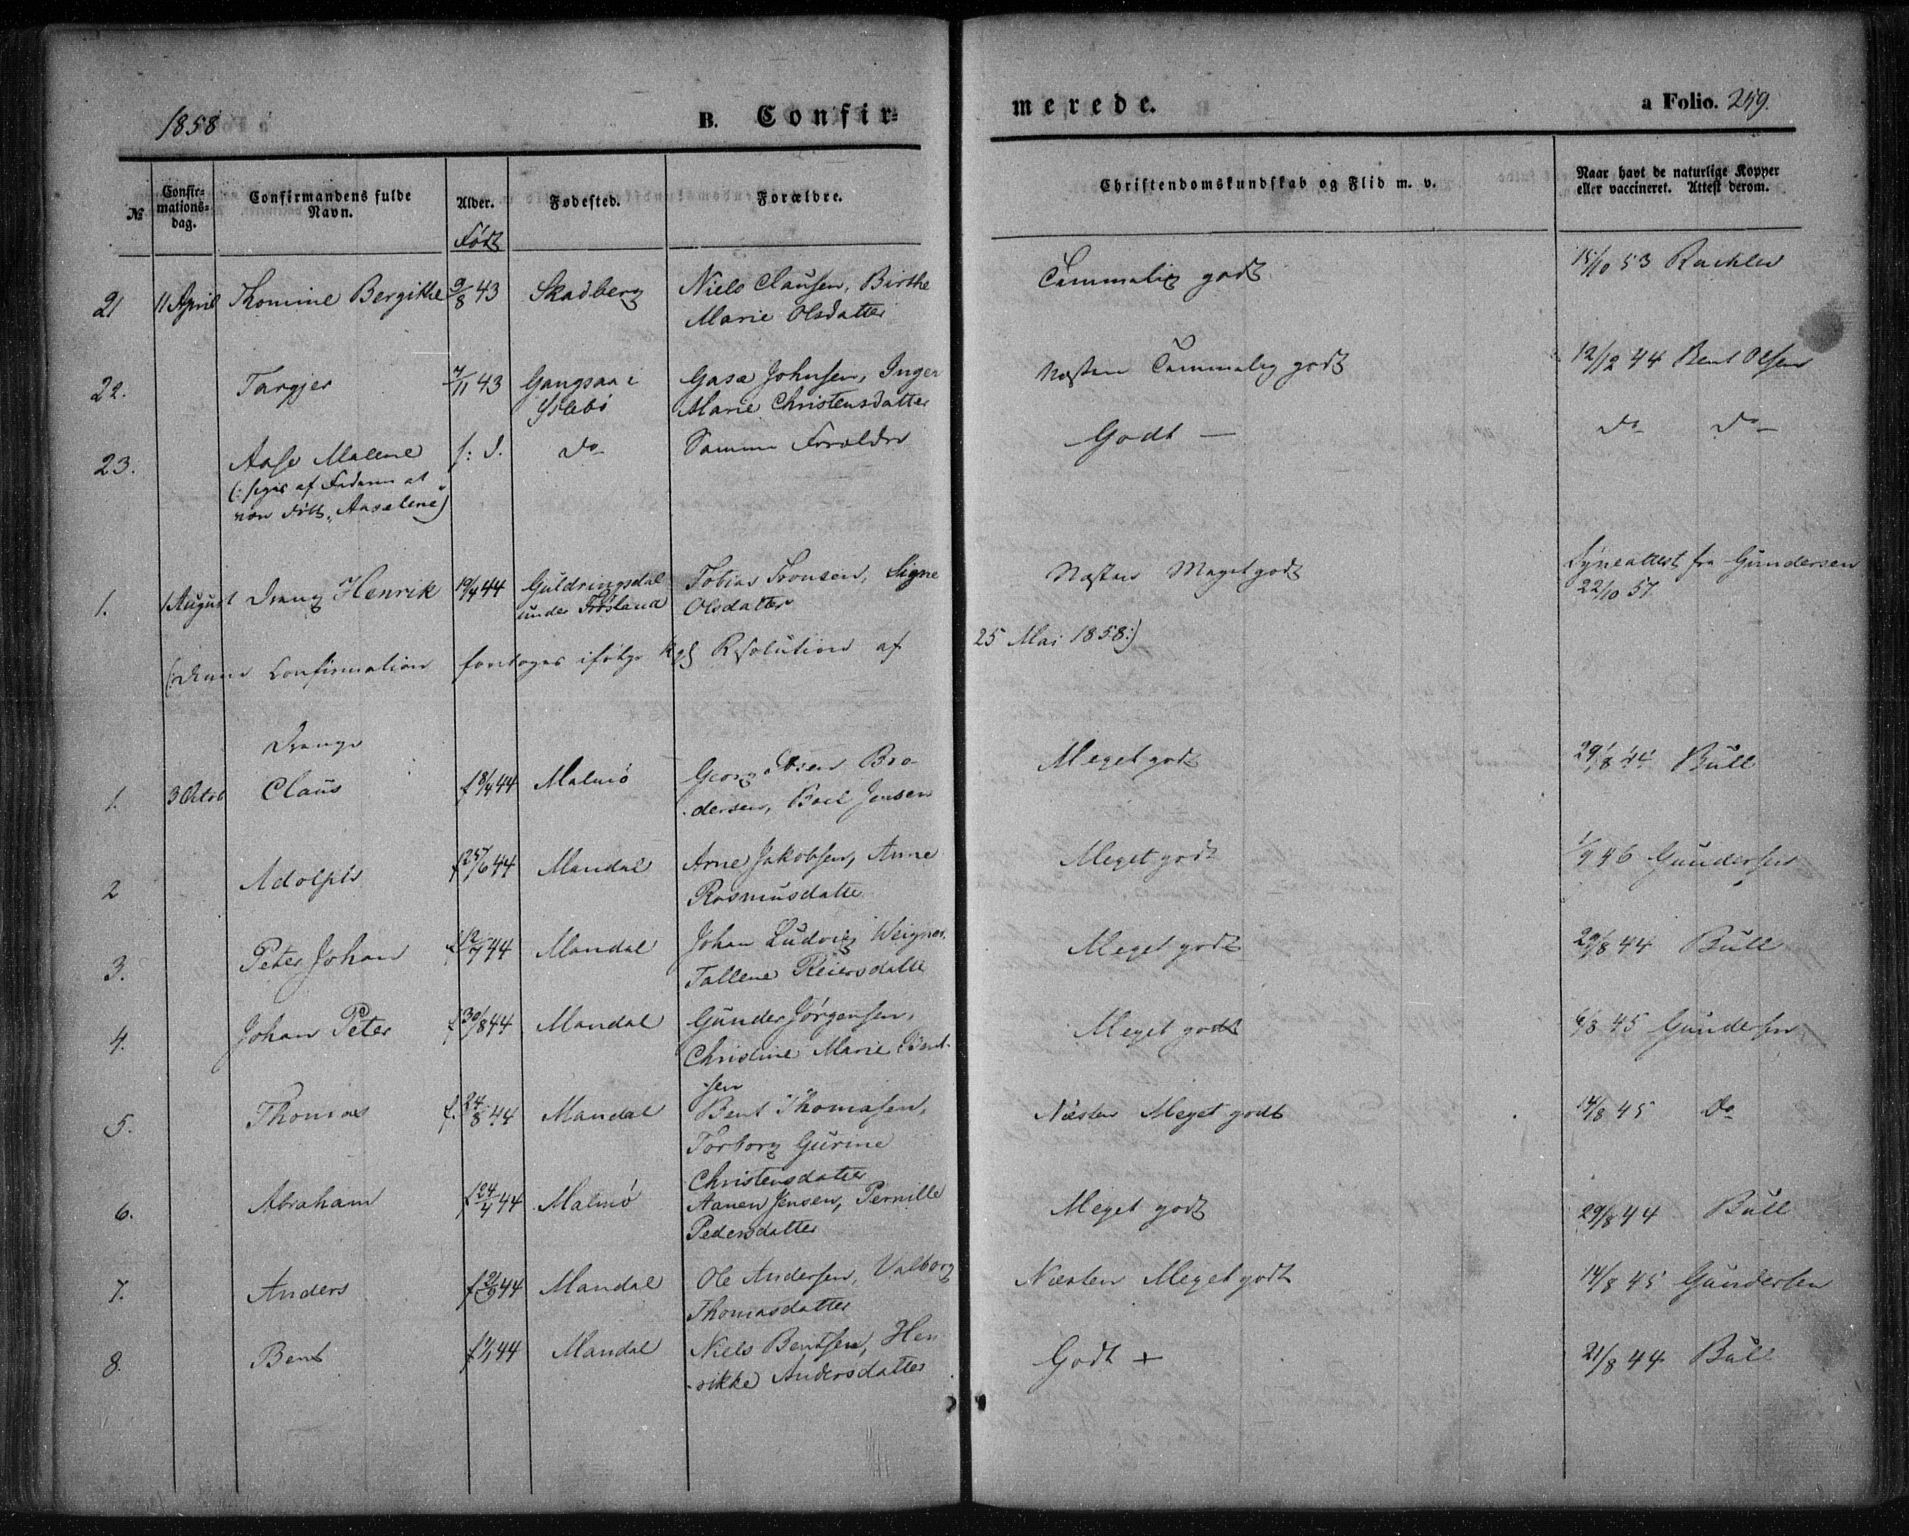 1858
B. Confir=
merede.
a Folio. 259.
№
Confir=
mations=
dag.
Confirmandens fulde
Navn.
Alder.
Født
Fødested.
Forældre.
Christendomskundskab og Flid m. v.
Naar havt de naturlige Kopper
eller vaccineret. Attest derom.
21 11 April Thomine Bergithe 9/8 43 Skadberg Niels Clausen, Birthe Temmelig godt 15/10 53
Marie Olsdatter
22. Targjer 7/11 43 Gangsaa i Gasa Johnsen, Inger Næsten Temmelig godt 12/12 44 Bent Olsen
Marie Christensdatter
23. Aase Malene f: d. do Samme Forældre Godt — do do
(: siges af Faderen at
være døbt „Aaselene")
1. 1 August Dreng Henrik 19/4 44 Guldringsdal Tobias Svensen, Signe Næsten Meget godt Synsattest fra Gundersen
under Frøsland Olsdatter 22/10 57
(: denne Confirmation foretoges ifølge Kgl Resolution af 25 Mai 1858:)
Drenge
1. 3 Octob Claus f 18/4 44 Malmø Georg Bro- Meget godt 29/8 44 Bull
dersen, Jensen
2 Adolph f 25/6 44 Mandal Arne Jakobsen, Anne Meget godt 1/9 46 Gundersen
Rasmusdatter
3. Peter Johan f 12/7 44 Mandal Johan Ludvig Weigner, Meget godt 29/8 44 Bull
Tallene Reiersdatter
4. Johan Peter f 30/8 44 Mandal Gunder Jørgensen, Meget godt 6/8 45 Gundersen
Christine Marie
sen
5. Thomas f. 24/8 44 Mandal Bent Thomasen, Næsten Meget godt 14/8 45 do
Torborg Gurine
Christensdatter
6. Abraham f 24/4 44 Malmø Aanen Jensen, Pernille Meget godt 29/8 44 Bull
Pedersdatter
7. Anders 44 Mandal Ole Andersen, Valborg Næsten Meget godt 14/8 45 Gundersen
Thomasdatter
8. Bent 44 Mandal Niels Bentsen, Hen Godt + 21/8 44 Bull
-rikke Andersdatter